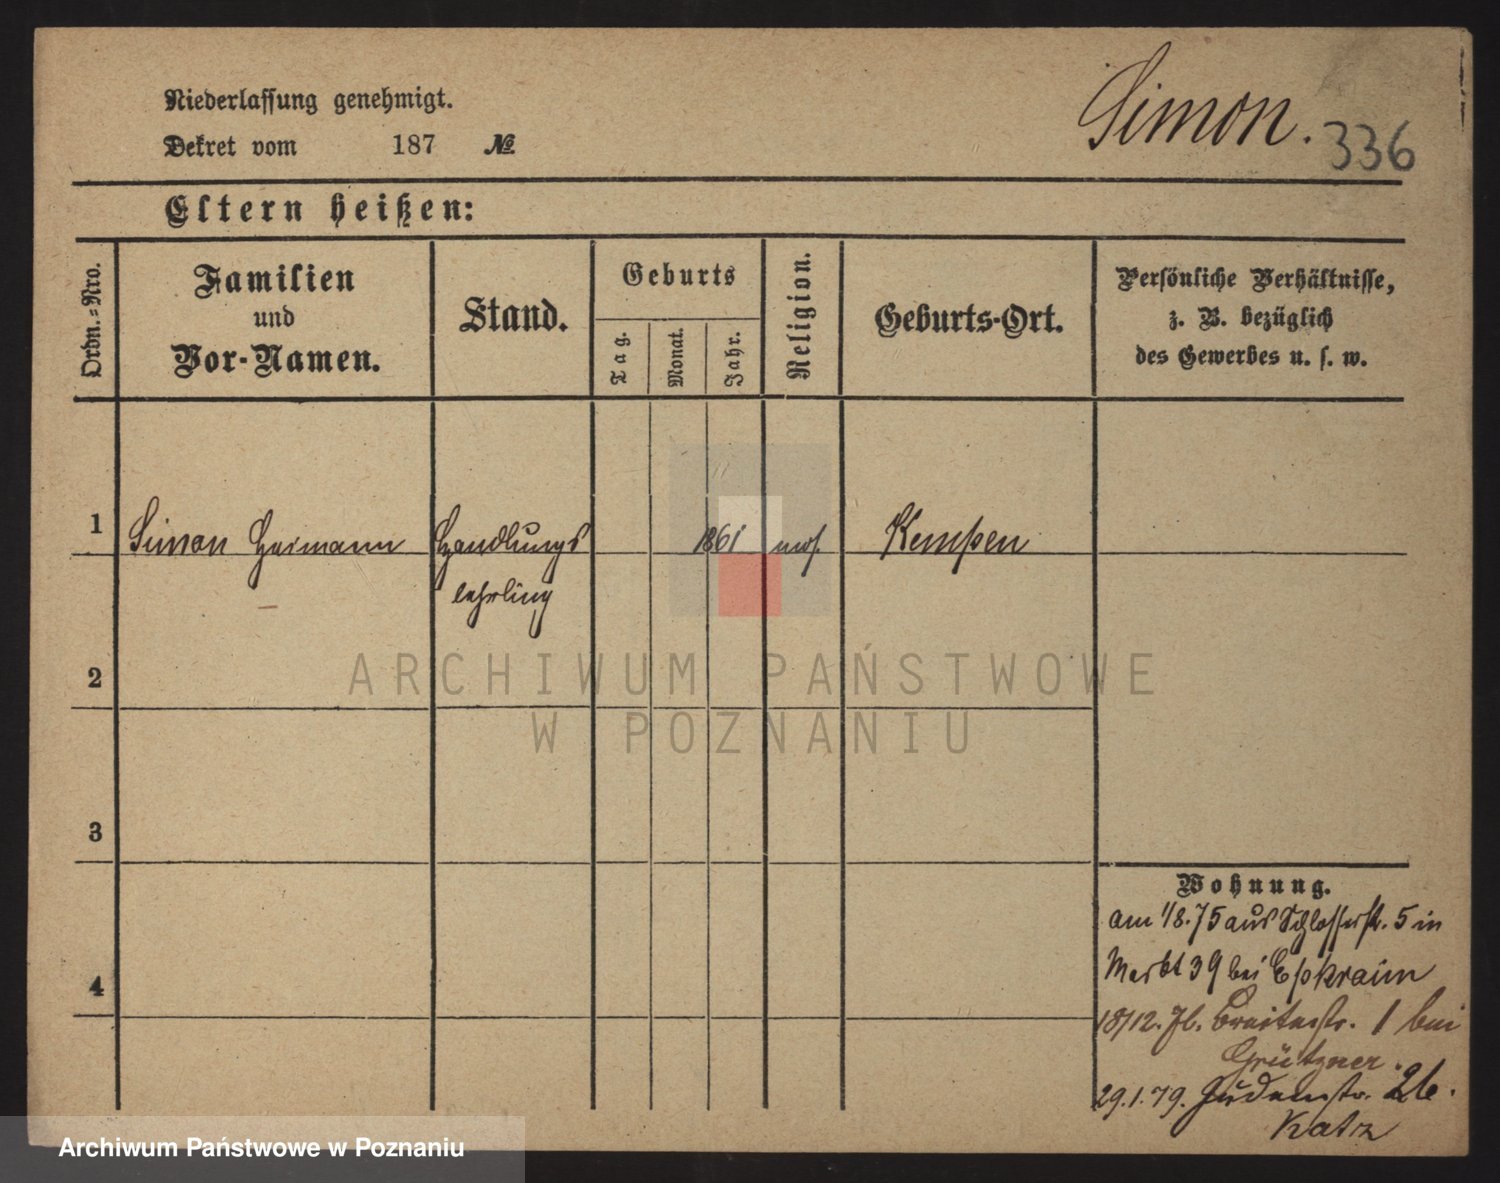 Niederlassung genehmigt.
Dekret vom 187 №
Simon. 336
Eltern heißen:
Ordn.-Nro.
Familien
und
Vor-Namen.
Stand.
Geburts
Tag.
Monat.
Jahr.
Religion.
Geburts-Ort.
Persönliche Verhältnisse,
z. B. bezüglich
des Gewerbes u. s. w.
1 Simon Heimann Handlungs 1861 mos. Kempen
lehrling
2
3
4
Wohnung.
am 1/8.75 aus Schlosserstr. 5 in
Markt 39 bei Ephraim
18/12. Breitestr. 1 bei
Grützner.
29.1.79. Judenstr. 26.
Katz
ARCHIWUM PAŃSTWOWE
W POZNANIU
Archiwum Państwowe w Poznaniu